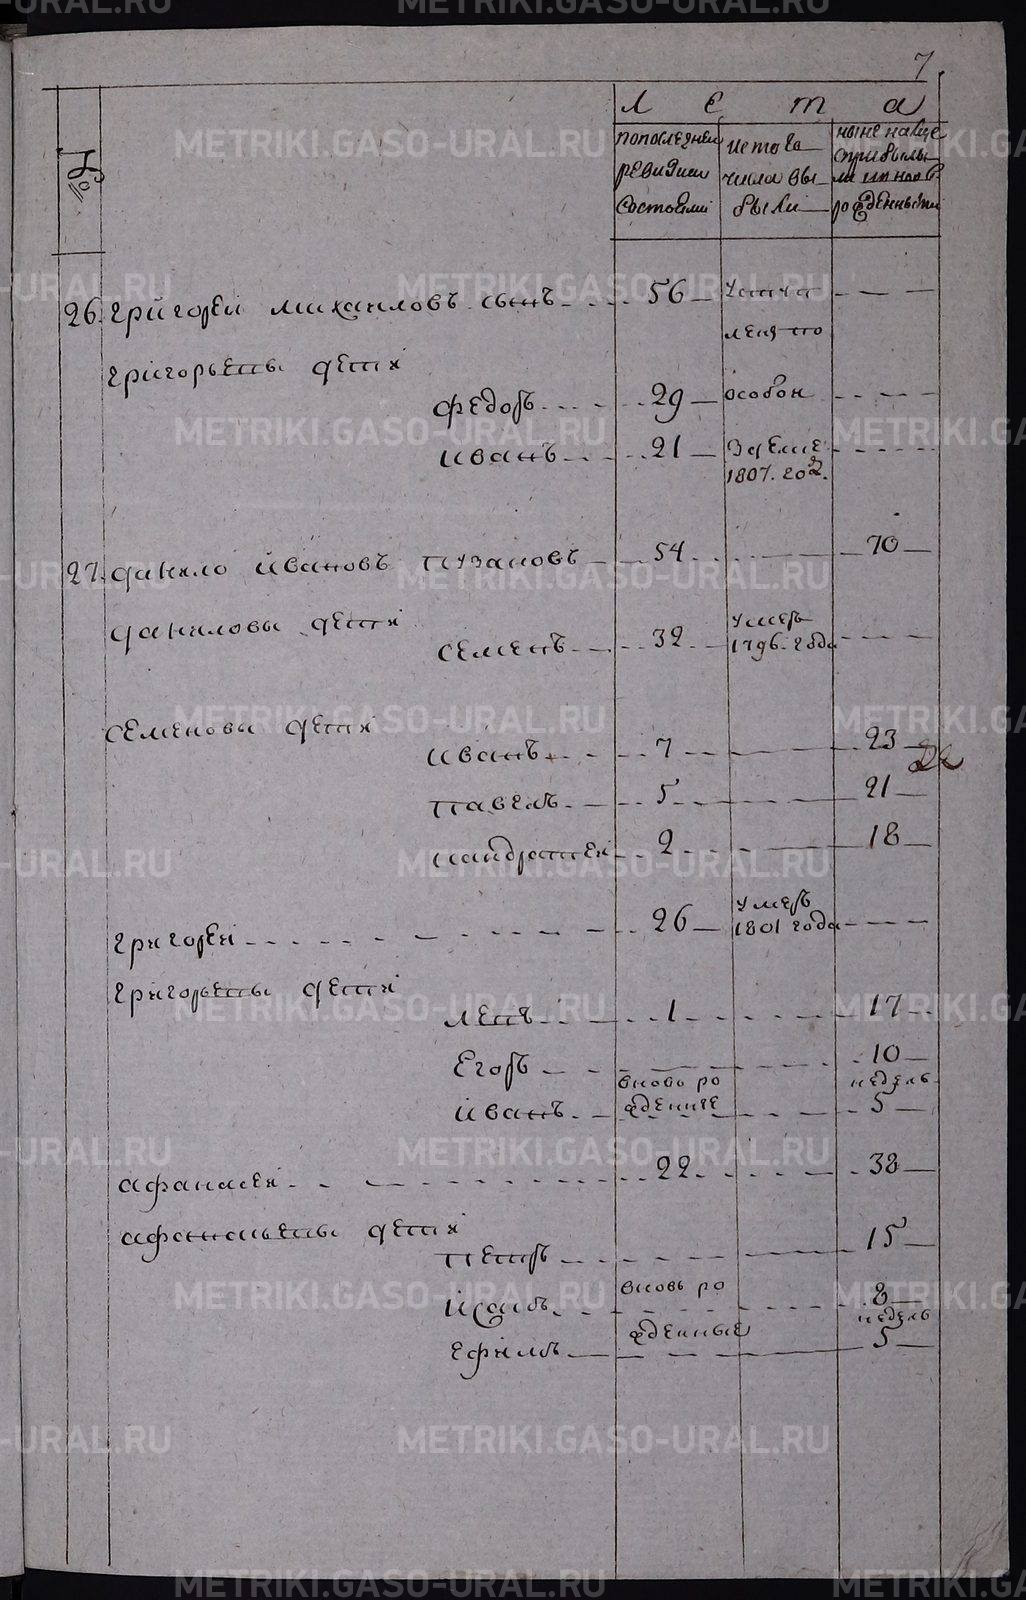 7.
Лета
№
по последней ревизии состояли
ис того числа выбыли
ныне на лице с прибылыми и новорожденными
26. Григорей Михаиловъ сынъ 56
Григорьевы дети
Федоръ 29 особои
Иванъ 21 1807. год.
27. Данило Ивановъ Пузановъ 54 70
Даниловы дети
Семенъ 32 умеръ 1796. года
Семеновы дети
Иванъ 7 23
Павелъ 5 21
Кандратей 2 18
Григорей 26 умеръ 1801 года
Григорьевы дети
1 17
Егоръ 10
вновь рожденные недель
Иванъ 5
Афанасей 22 38
Афонасьевы дети
Петръ 15
вновь рожденные
Исакъ 8
недель
Ефимъ 5
METRIKI.GASO-URAL.RU